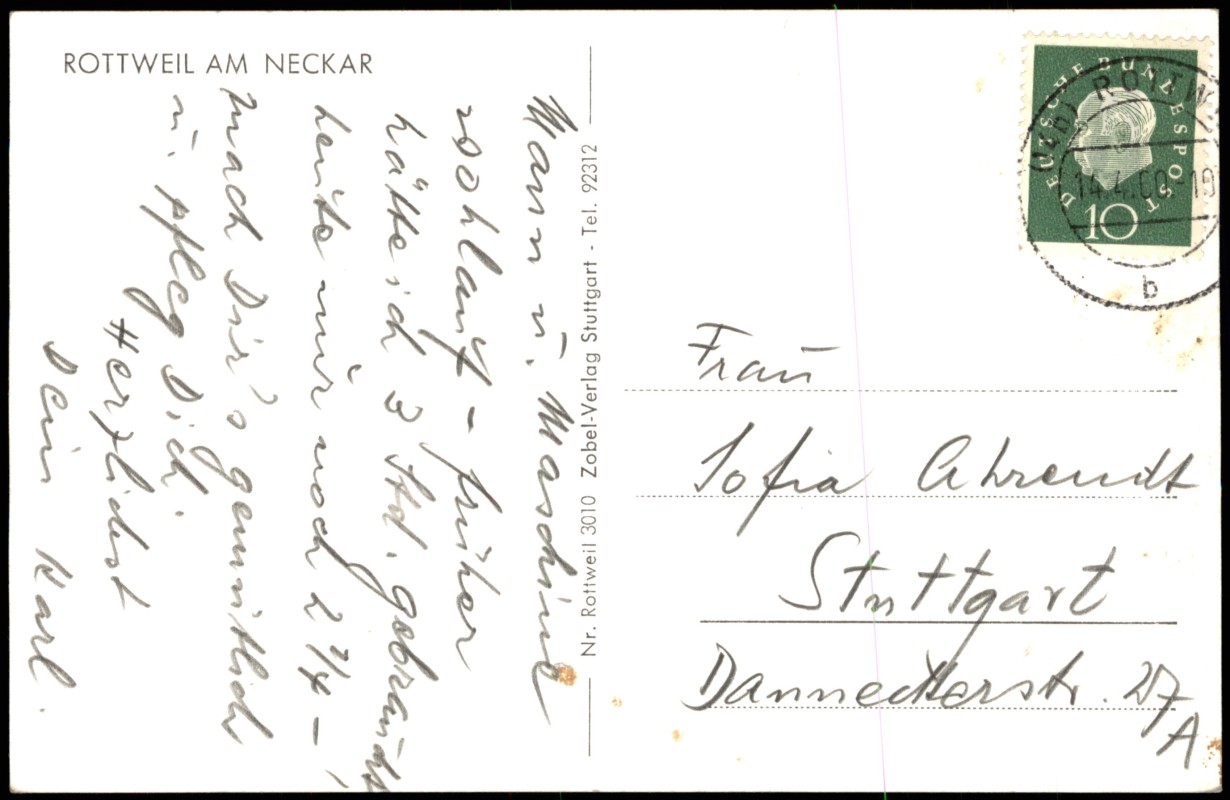 ROTTWEIL AM NECKAR
Mann u. Maschine
wohlauf – früher
hätte ich 3 Std. gebraucht
heute nur noch 2 1/4 – !
Mach Dir's gemütlich
u. pfleg Dich.
Herzlichst
Dein Karl.
Nr. Rottweil 3010 Zobel-Verlag Stuttgart - Tel. 92312
DEUTSCHE BUNDESPOST
10
ROTTW
14.4.60.-18
b
Frau
Sofia Ahrendt
Stuttgart
Danneckerstr. 27
A